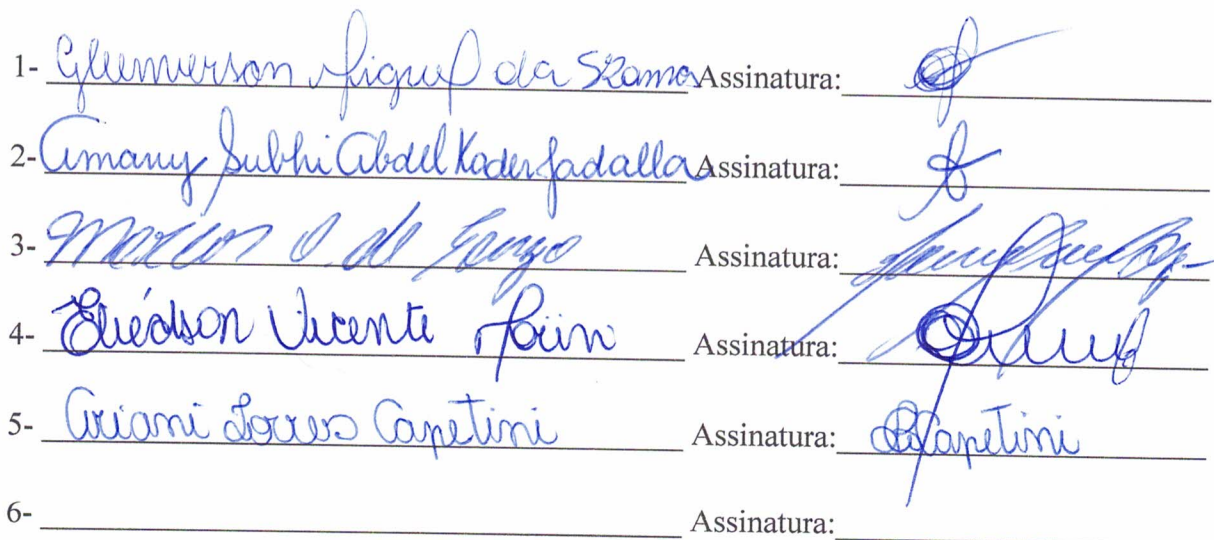 1- Glemerson Miguel da S Ramos Assinatura:
2- Amany Subhi Abdel Kader Jadalla Assinatura:
3- Marcos O. de Assinatura:
4- Eliédson Vicente Assinatura:
5- Ariani Torres Capetini Assinatura: Capetini
6- Assinatura: